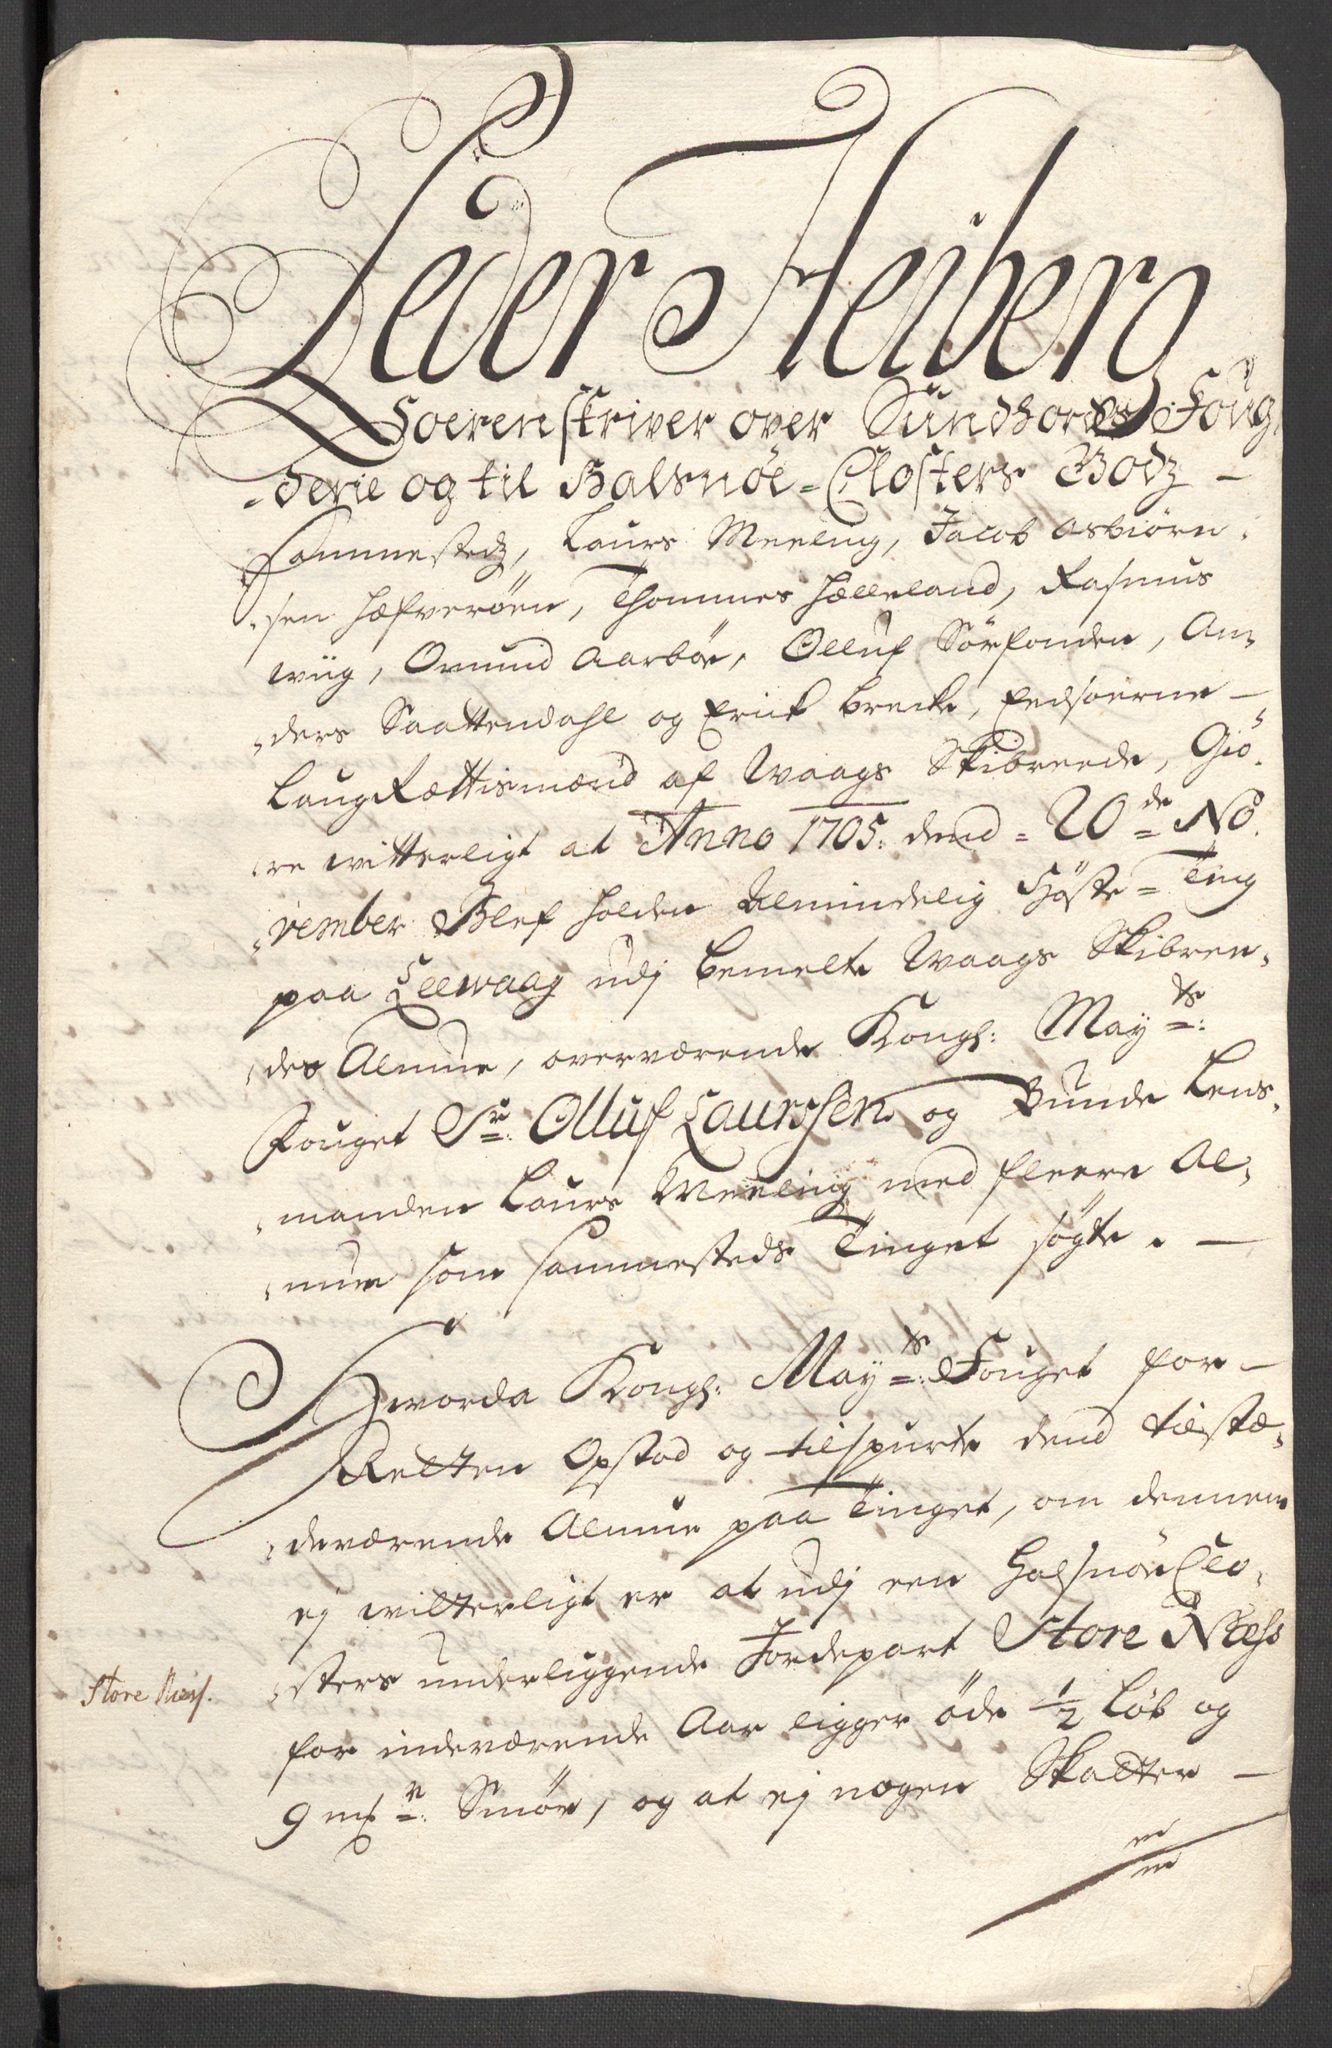 Peder Heiberg
Soerenskriver over Sundhords Foug¬
-derie og til Halsnöe-Closters Godz -
Sammestedz, Laurs Meeling, Jacob Asbiörn¬
sen Hæfveröen, Thommes Hælleland, Rasmus
wiig, Omund Aarböe, Olluf Sörfonden, An¬
ders Saattendahl og Erick Brecke, Eedsoerne -
LaugRættismænd af Waags Skibreede, Giö¬
re witterligt at Anno 1705. dend = 20de No¬
vember Blef holden Almindelig Höste=Ting
paa Leewaag udj bemelte Waags Skibree¬
des Almue, overværende Kongl: Mayts:
Fouget Sr: Olluf Laurssen og Bunde Lens¬
manden Laurs Meeling med fleere Al¬
mue som sammesteds Tinget søgte. -
Hworda Kongl: Mayts: Fouget for -
Retten Opstod og tilspurte dend tilstæ¬
deværende Almue paa Tinget, om dennem
ej witterligt er at udj een Halsnöe Clo¬
sters underliggende Jordepart Store Næss
Store Næss.
for indeværende Aar ligger öde 1/2 Löb og
9 mkr: Smör, og at ej nogen Skatter -